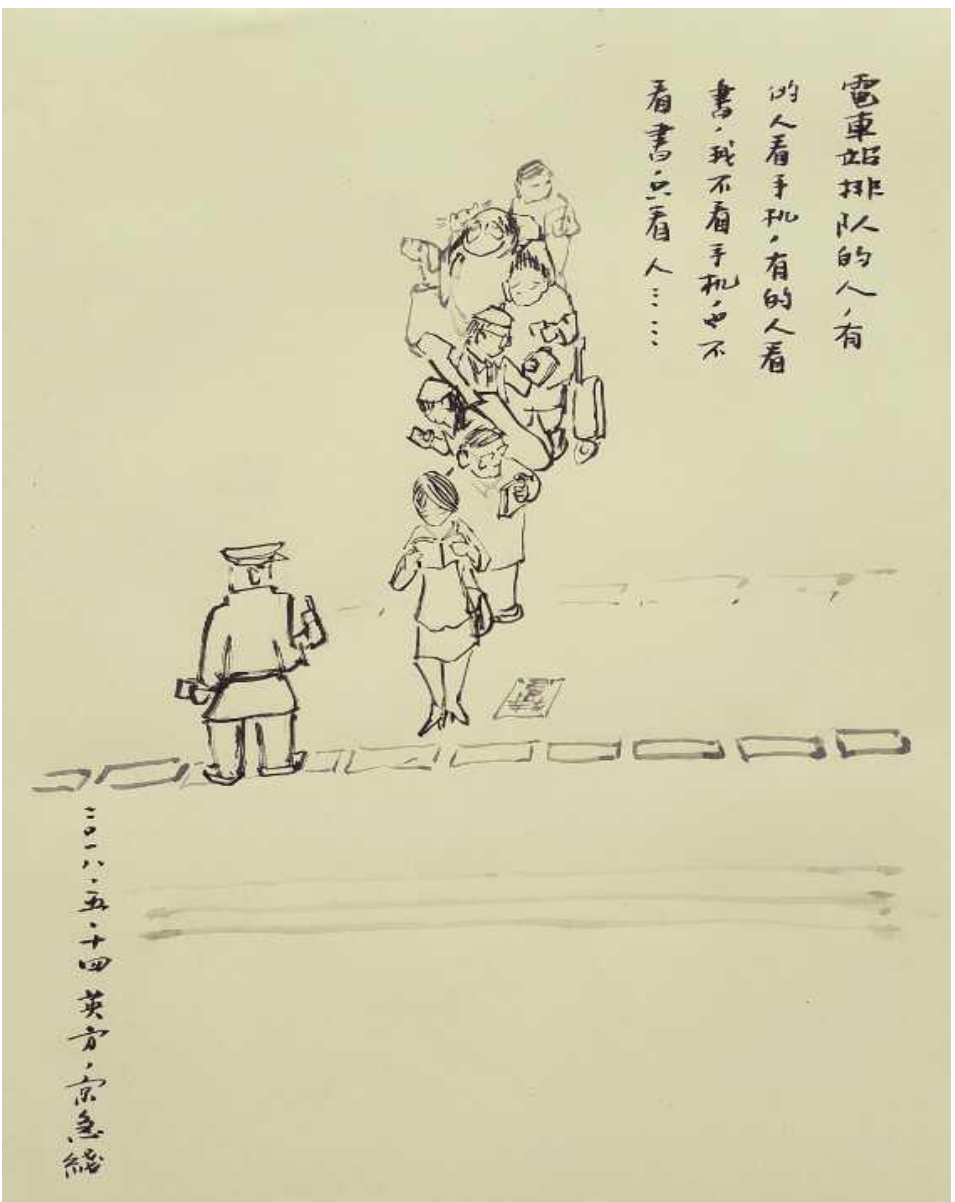 電車站排队的人,有
的人看手机,有的人看
書,我不看手机,也不
看書只看人……
二〇一八.五.十四 英方,京急線